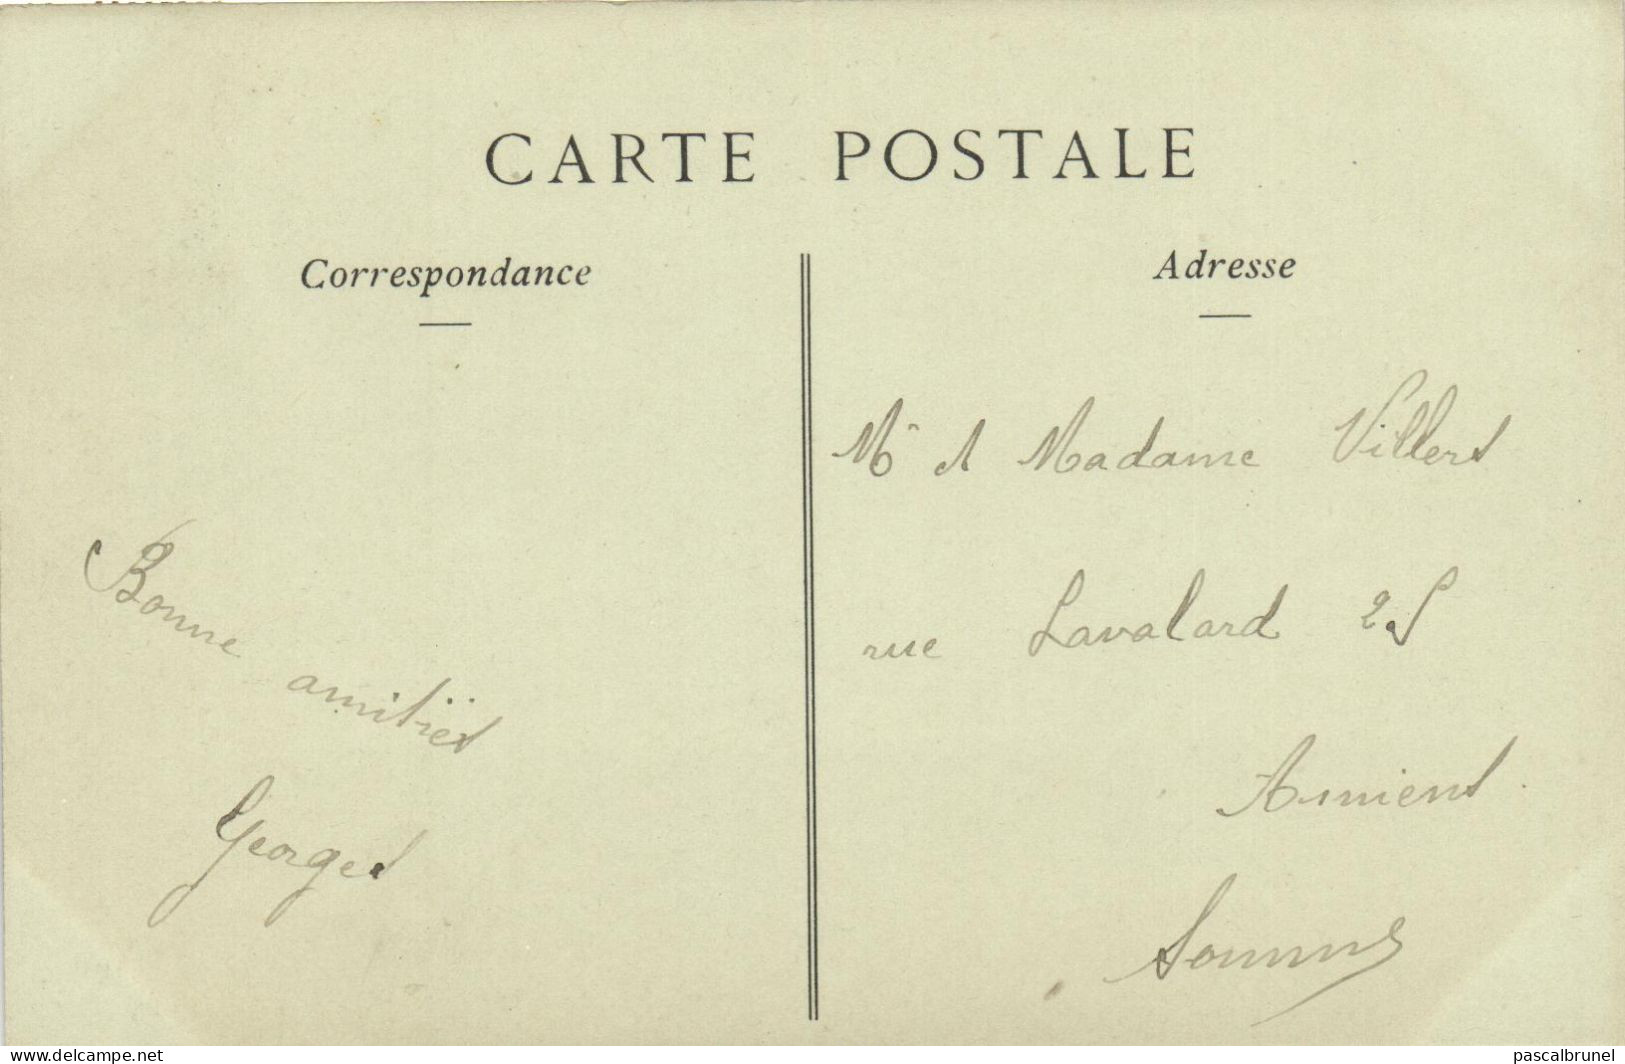 CARTE POSTALE
Correspondance
Adresse
Bonne
amitiés
Georges
Mr et Madame Villers
rue Lavalard 25
Amiens
Somme
www.delcampe.net
pascalbrunel